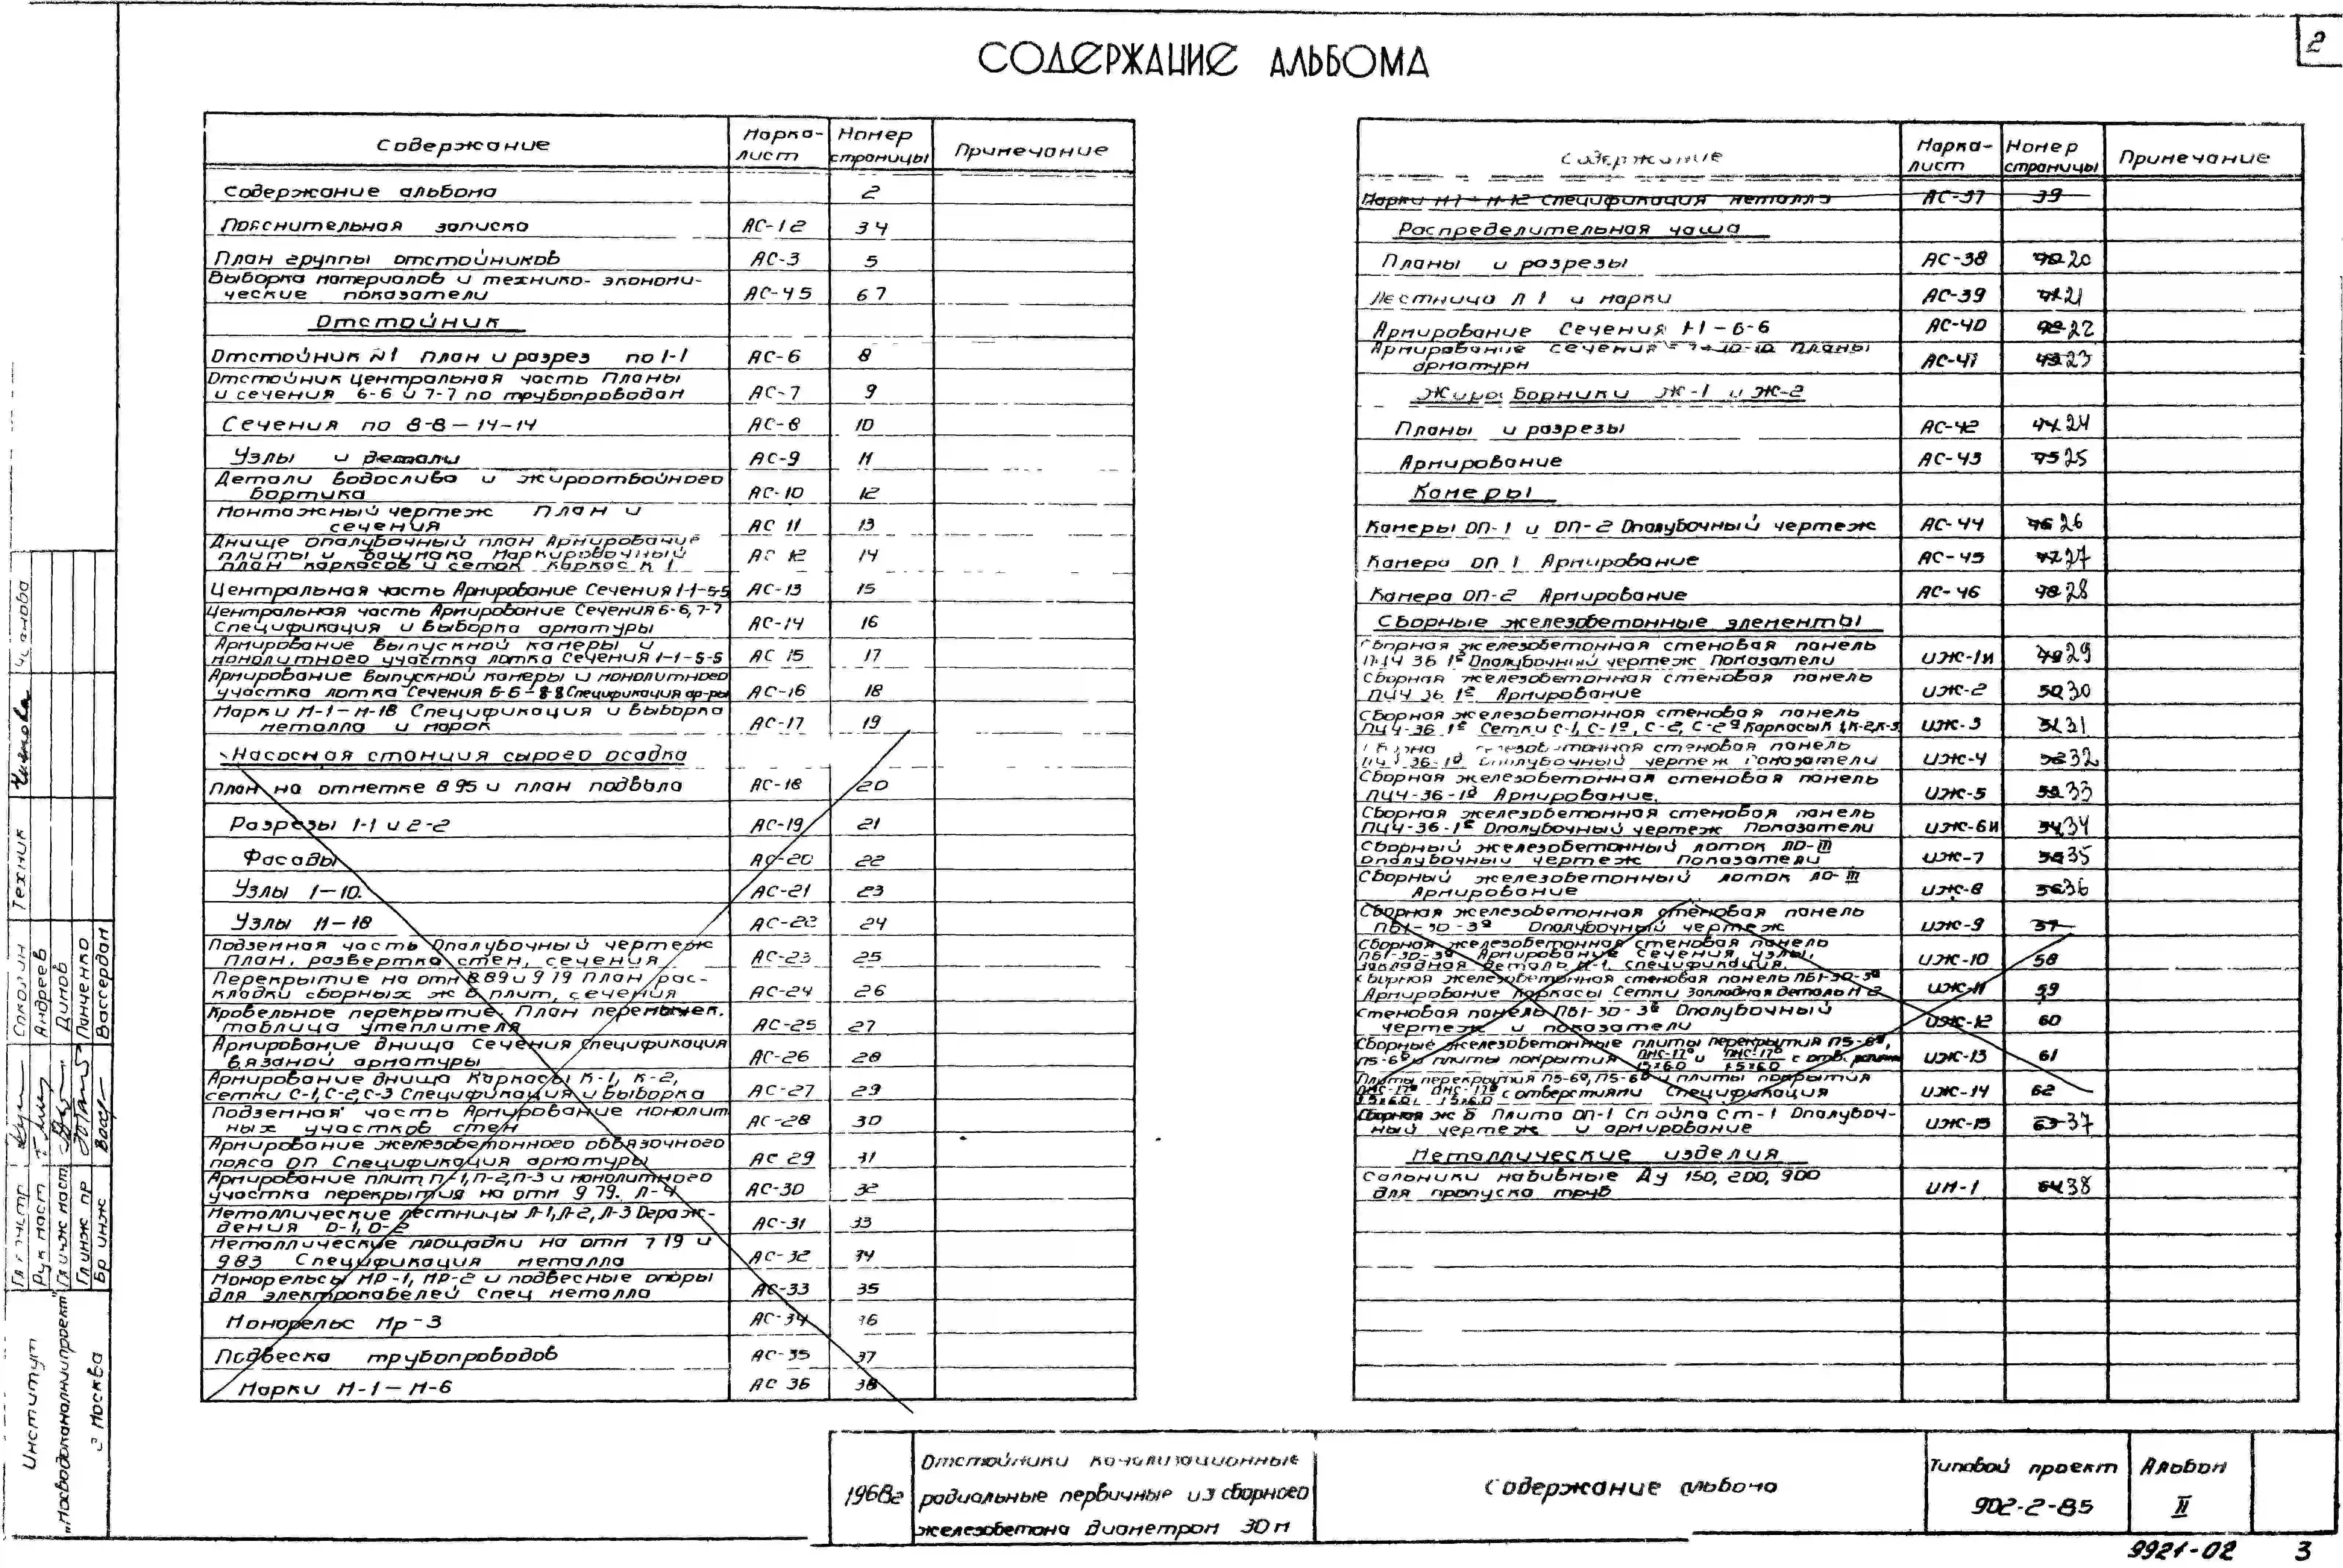 2
СОДЕРЖАНИЕ АЛЬБОМА
Содержание Марка-лист Номер страницы Примечание
Содержание альбома 2
Пояснительная записка АС-1 2 3 4
План группы отстойников АС-3 5
Выборка материалов и технико-экономи-
ческие показатели АС-4 5 6 7
Отстойник
Отстойник N1 План и разрез по 1-1 АС-6 8
Отстойник Центральная часть Планы
и сечения 6-6 и 7-7 по трубопроводам АС-7 9
Сечения по 8-8 — 14-14 АС-8 10
Узлы и детали АС-9 11
Детали водослива и жироотбойного
бортика АС-10 12
Монтажный чертеж План и
сечения АС 11 13
Днище Опалубочный план Армирование
плиты и башмака Маркировочный
план каркасов и сеток Каркас К 1 АС 12 14
Центральная часть Армирование Сечения 1-1-5-5 АС-13 15
Центральная часть Армирование Сечения 6-6, 7-7
Спецификация и выборка арматуры АС-14 16
Армирование выпускной камеры и
монолитного участка лотка Сечения 1-1-5-5 АС 15 17
Армирование выпускной камеры и монолитного
участка лотка Сечения 6-6-8-8 Спецификация ар-ры АС-16 18
Марки М-1-М-18 Спецификация и выборка
металла и марок АС-17 19
Насосная станция сырого осадка
План на отметке 8 95 и план подвала АС-18 20
Разрезы 1-1 и 2-2 АС-19 21
Фасады АС-20 22
Узлы 1-10. АС-21 23
Узлы 11-18 АС-22 24
Подземная часть Опалубочный чертеж
план, развертка стен, сечения АС-23 25
Перекрытие на отм 8.89 и 9 79 План рас-
кладки сборных ж б плит, сечения АС-24 26
Кровельное перекрытие, План перемычек.
таблица утеплителя АС-25 27
Армирование днища Сечения Спецификация
вязаной арматуры АС-26 28
Армирование днища Каркасы К-1, К-2,
сетки С-1, С-2, С-3 Спецификация и выборка АС-27 29
Подземная часть Армирование монолит
ных участков стен АС-28 30
Армирование железобетонного обвязочного
пояса ОП Спецификация арматуры АС 29 31
Армирование плит П-1, П-2, П-3 и монолитного
участка перекрытия на отм 9 79. Л-4 АС-30 32
Металлические лестницы Л-1, Л-2, Л-3 Ограж-
дения О-1, О-2 АС-31 33
Металлические площадки на отм 7 19 и
9 83 Спецификация металла АС-32 34
Монорельсы МР-1, МР-2 и подвесные опоры
для электрокабелей Спец металла АС-33 35
Монорельс Мр-3 АС-34 36
Подвеска трубопроводов АС-35 37
Марки М-1-М-6 АС 36 38
Содержание Марка-лист Номер страницы Примечание
Марки М7-М-12 Спецификация металла АС-37 39
Распределительная чаша
Планы и разрезы АС-38 40 20
Лестница Л 1 и марки АС-39 41 21
Армирование Сечения 1-1-6-6 АС-40 42 22
Армирование сечения 7-7-10-10 Планы
арматуры АС-41 43 23
Жиросборники Ж-1 и Ж-2
Планы и разрезы АС-42 44 24
Армирование АС-43 45 25
Камеры
Камеры ОП-1 и ОП-2 Опалубочный чертеж АС-44 46 26
Камера ОП 1 Армирование АС-45 47 27
Камера ОП-2 Армирование АС-46 48 28
Сборные железобетонные элементы
Сборная железобетонная стеновая панель
ПЦ4 36 1г Опалубочный чертеж Показатели ИЖ-1и 49 29
Сборная железобетонная стеновая панель
ПЦ4 36 1г Армирование ИЖ-2 50 30
Сборная железобетонная стеновая панель
ПЦ4-36 1г Сетки С-1, С-1а, С-2, С-2а Каркасы К 1, К-2, К-3 ИЖ-3 51 31
Сборная железобетонная стеновая панель
ПЦ4 36-1д Опалубочный чертеж Показатели ИЖ-4 52 32
Сборная железобетонная стеновая панель
ПЦ4-36-1д Армирование. ИЖ-5 53 33
Сборная железобетонная стеновая панель
ПЦ4-36-1е Опалубочный чертеж Показатели ИЖ-6И 54 34
Сборный железобетонный лоток ЛО-III
Опалубочный чертеж Показатели ИЖ-7 55 35
Сборный железобетонный лоток ЛО-III
Армирование ИЖ-8 56 36
Сборная железобетонная стеновая панель
ПБ1-30-3а Опалубочный чертеж ИЖ-9 57
Сборная железобетонная стеновая панель
ПБ1-30-3а Армирование Сечения, узлы,
закладная деталь М-1. спецификация. ИЖ-10 58
Сборная железобетонная стеновая панель ПБ1-30-3а
Армирование Каркасы Сетки Закладная деталь М 2 ИЖ-11 59
Стеновая панель ПБ1-30-3б Опалубочный
чертеж и показатели ИЖ-12 60
Сборные железобетонные плиты перекрытия П5-6а,
П5-6б и плиты покрытия ПНС-17а и ПНС-17б с отв. ИЖ-13 61
1.5х6.0 1.5х6.0
Плиты перекрытия П5-6а, П5-6б и плиты покрытия
ПНС-17а ПНС-17б с отверстиями Спецификация ИЖ-14 62
1.5х6.0, 1.5х6.0
Сборная ж б Плита ОП-1 Стойка Ст-1 Опалубоч-
ный чертеж и армирование ИЖ-15 63 37
Металлические изделия
Сальники набивные Ду 150, 200, 900
для пропуска труб ИМ-1 64 38
Институт
„Мосводоканалниипроект"
г Москва
Гл констр
Рук маст
Гл инж маст
Гл инж пр
Бр инж
Соколин
Андреев
Димов
Панченко
Вассердан
Техник
1968г
Отстойники канализационные
радиальные первичные из сборного
железобетона диаметром 30 м
Содержание альбома
Типовой проект
902-2-85
Альбом
II
9921-02 3